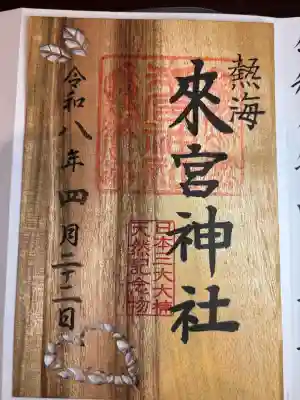 熱海
來宮神社
日本三大大楠
天然記念物
令和八年四月二十二日